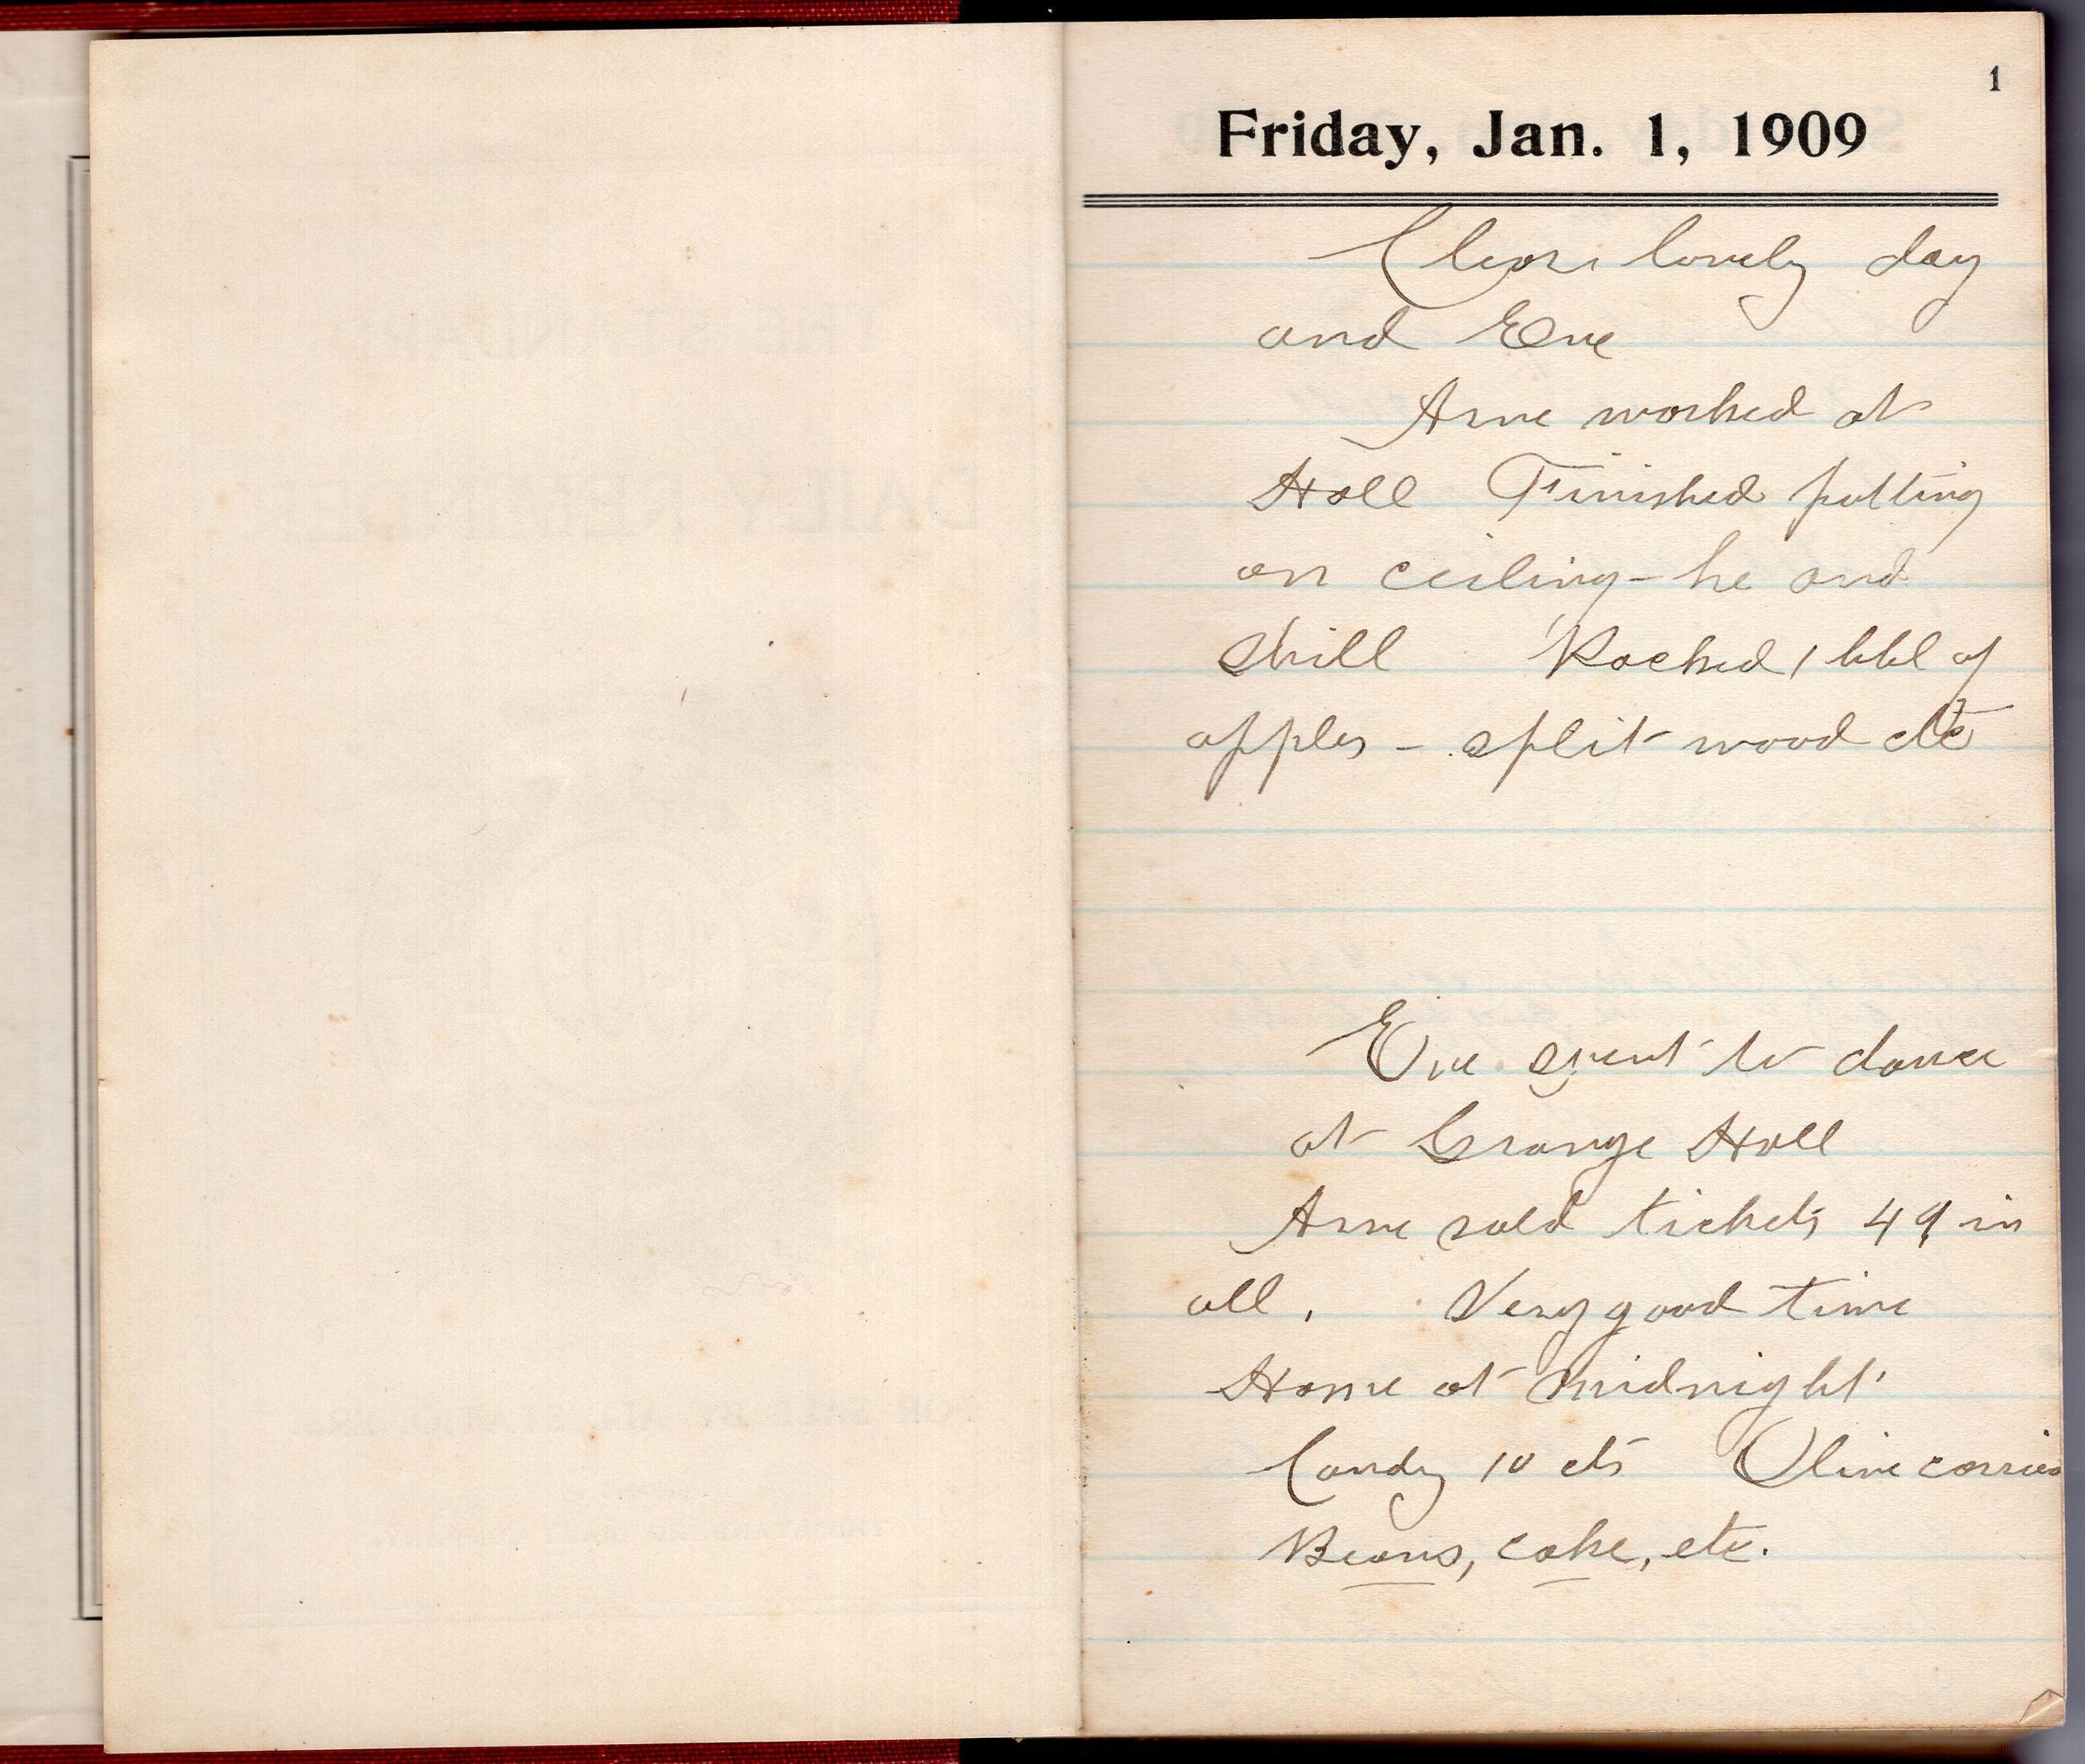 1
Friday, Jan. 1, 1909
Clear lovely day
and Eve
Arne worked at
Hall Finished putting
on ceiling - he and
Packed 1 bbl of
apples - split wood etc
Eve went to dance
at Grange Hall
Arne sold tickets 49 in
all. Very good time
Home at midnight
Candy 10 cts Olive carried
Beans, cake, etc.